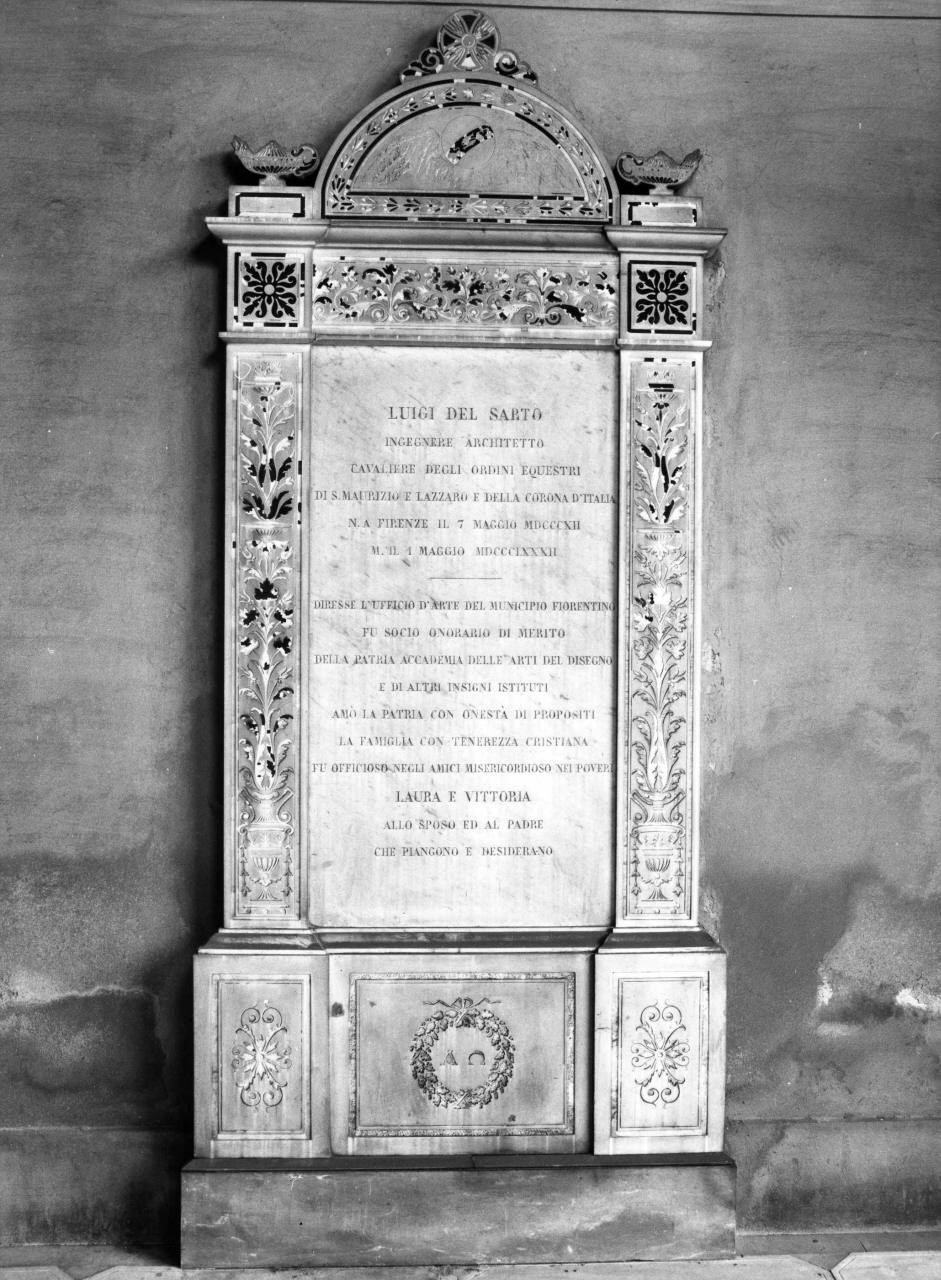 LUIGI DEL SARTO
INGEGNERE ARCHITETTO
CAVALIERE DEGLI ORDINI EQUESTRI
DI S. MAURIZIO E LAZZARO E DELLA CORONA D'ITALIA
N. A FIRENZE IL 7 MAGGIO MDCCCXII
M. IL 1 MAGGIO MDCCCLXXXII
DIRESSE L'UFFICIO D'ARTE DEL MUNICIPIO FIORENTINO
FU SOCIO ONORARIO DI MERITO
DELLA PATRIA ACCADEMIA DELLE ARTI DEL DISEGNO
E DI ALTRI INSIGNI ISTITUTI
AMÒ LA PATRIA CON ONESTÀ DI PROPOSITI
LA FAMIGLIA CON TENEREZZA CRISTIANA
FU OFFICIOSO NEGLI AMICI MISERICORDIOSO NEI POVERI
LAURA E VITTORIA
ALLO SPOSO ED AL PADRE
CHE PIANGONO E DESIDERANO
Α Ω